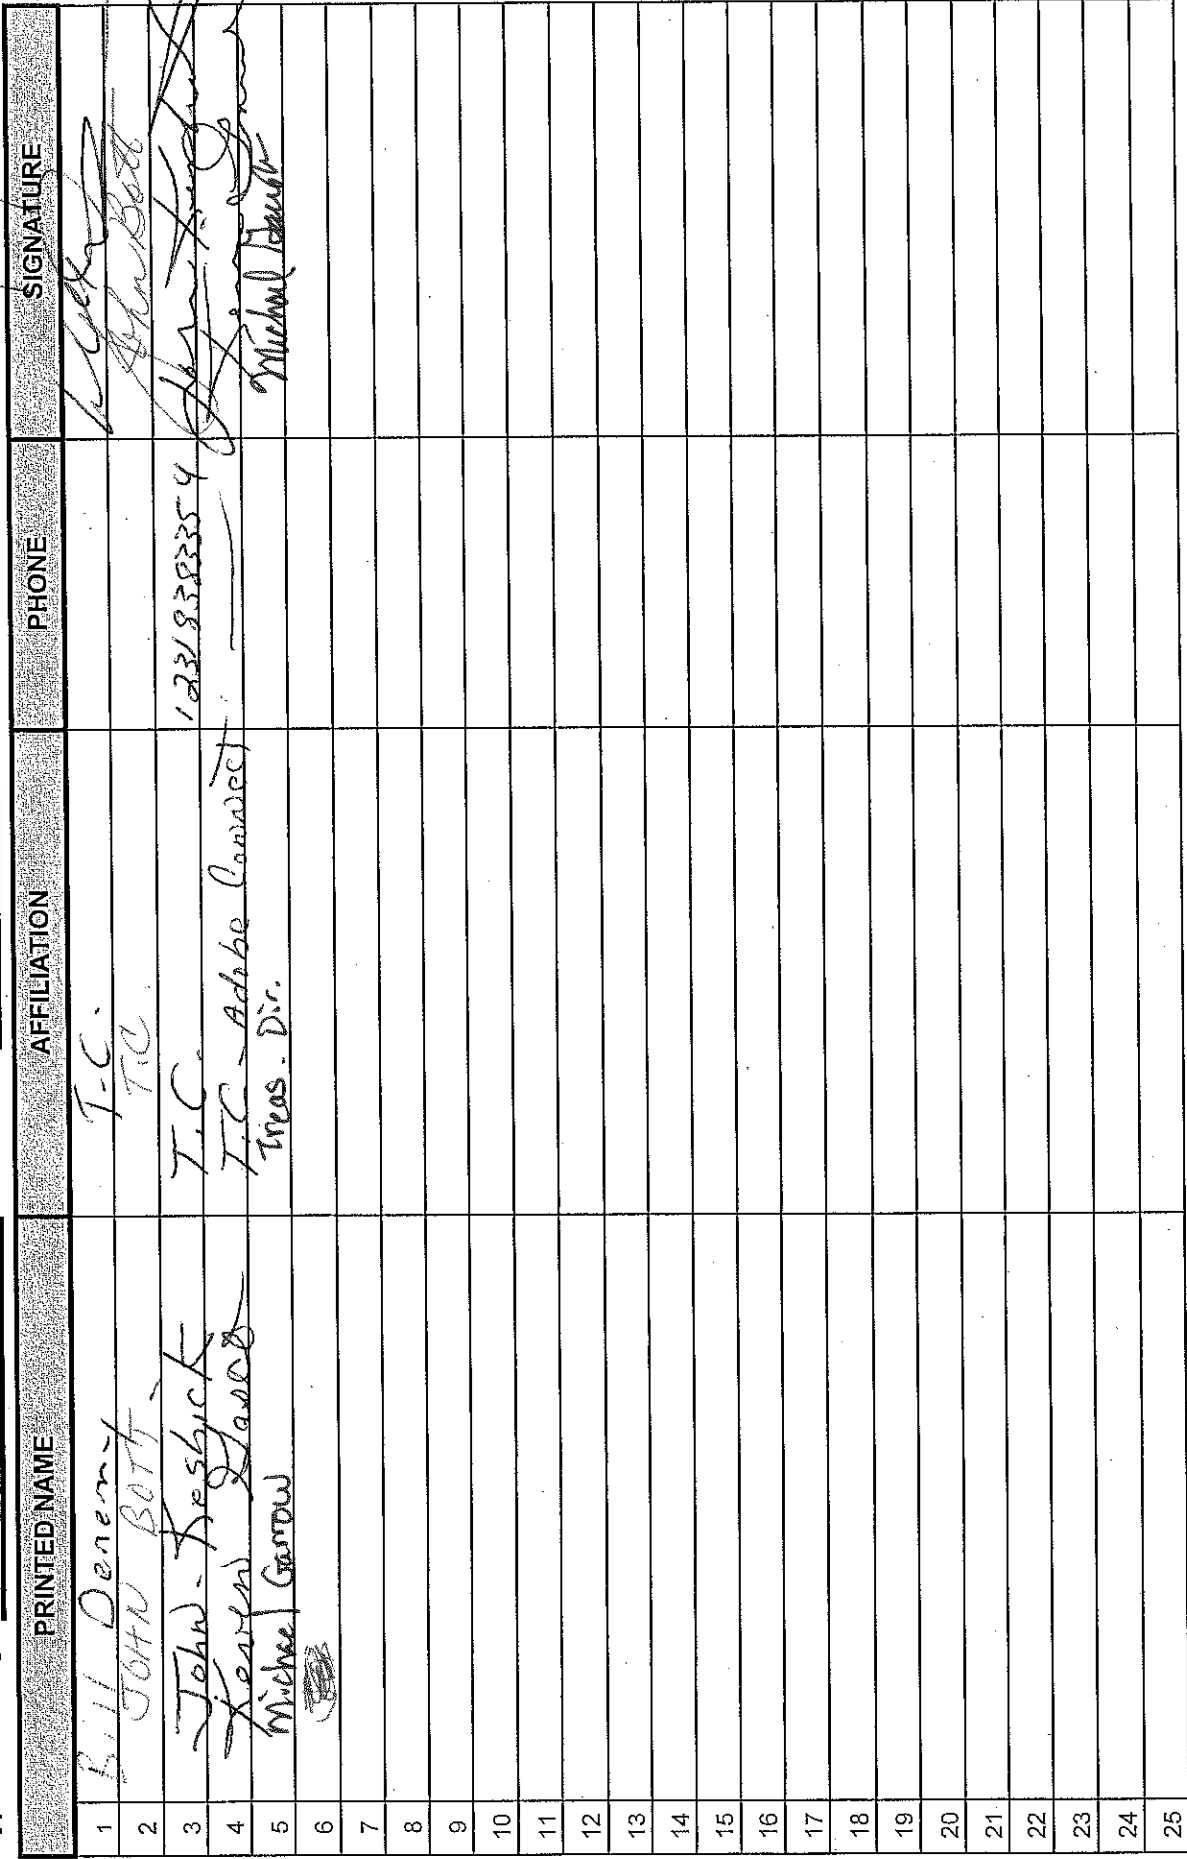 PRINTED NAME AFFILIATION PHONE SIGNATURE
1 Bill Denemy T.C.
2 JOHN BOTT - T.C. John Bott
3 John - Keshick T.C. 12319383354
4 T.C. - Adobe Connect
5 Michael Garrow Treas. Dir. Michael
6
7
8
9
10
11
12
13
14
15
16
17
18
19
20
21
22
23
24
25